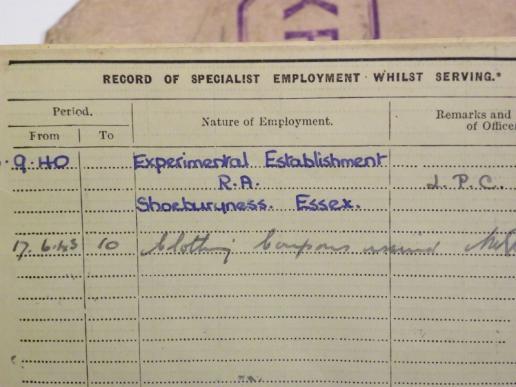 RECORD OF SPECIALIST EMPLOYMENT WHILST SERVING.*
Period.
Nature of Employment.
Remarks and
of Office
From
To
9.40
Experimental Establishment
R.A.
J.P.C.
Shoeburyness. Essex.
17.6.43 10 Clothing Coupons issued